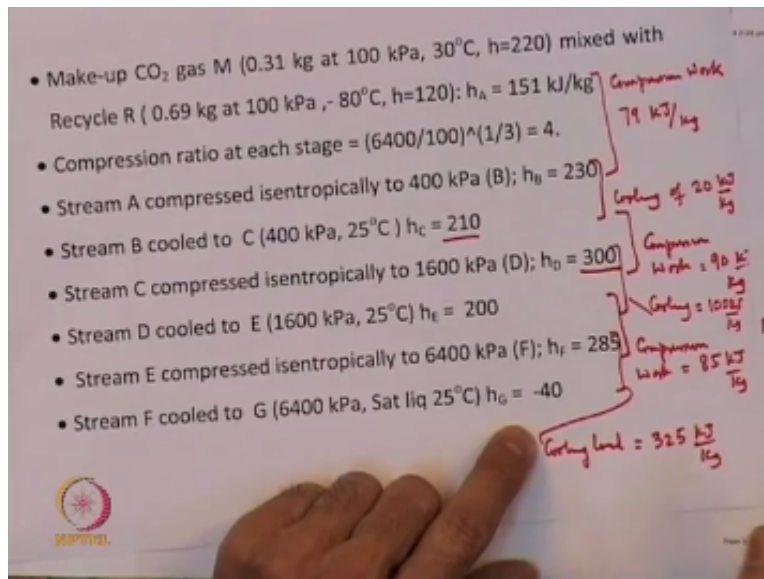 • Make-up CO₂ gas M (0.31 kg at 100 kPa, 30°C, h=220) mixed with
Recycle R ( 0.69 kg at 100 kPa ,- 80°C, h=120): hA = 151 kJ/kg
• Compression ratio at each stage = (6400/100)^(1/3) = 4.
• Stream A compressed isentropically to 400 kPa (B); hB = 230
• Stream B cooled to C (400 kPa, 25°C ) hC = 210
• Stream C compressed isentropically to 1600 kPa (D); hD = 300
• Stream D cooled to E (1600 kPa, 25°C) hE = 200
• Stream E compressed isentropically to 6400 kPa (F); hF = 285
• Stream F cooled to G (6400 kPa, Sat liq 25°C) hG = -40
Compression Work
79 KJ/kg
Cooling of 20 KJ/Kg
Compression
Work = 90 KJ/Kg
Cooling = 100 KJ/Kg
Compression
Work = 85 KJ/Kg
Cooling Load = 325 KJ/Kg
NPTEL